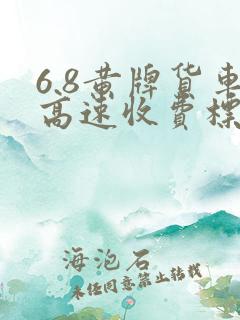 6.8黄牌货车
高速收费标
海泡石
未经同意禁止转载